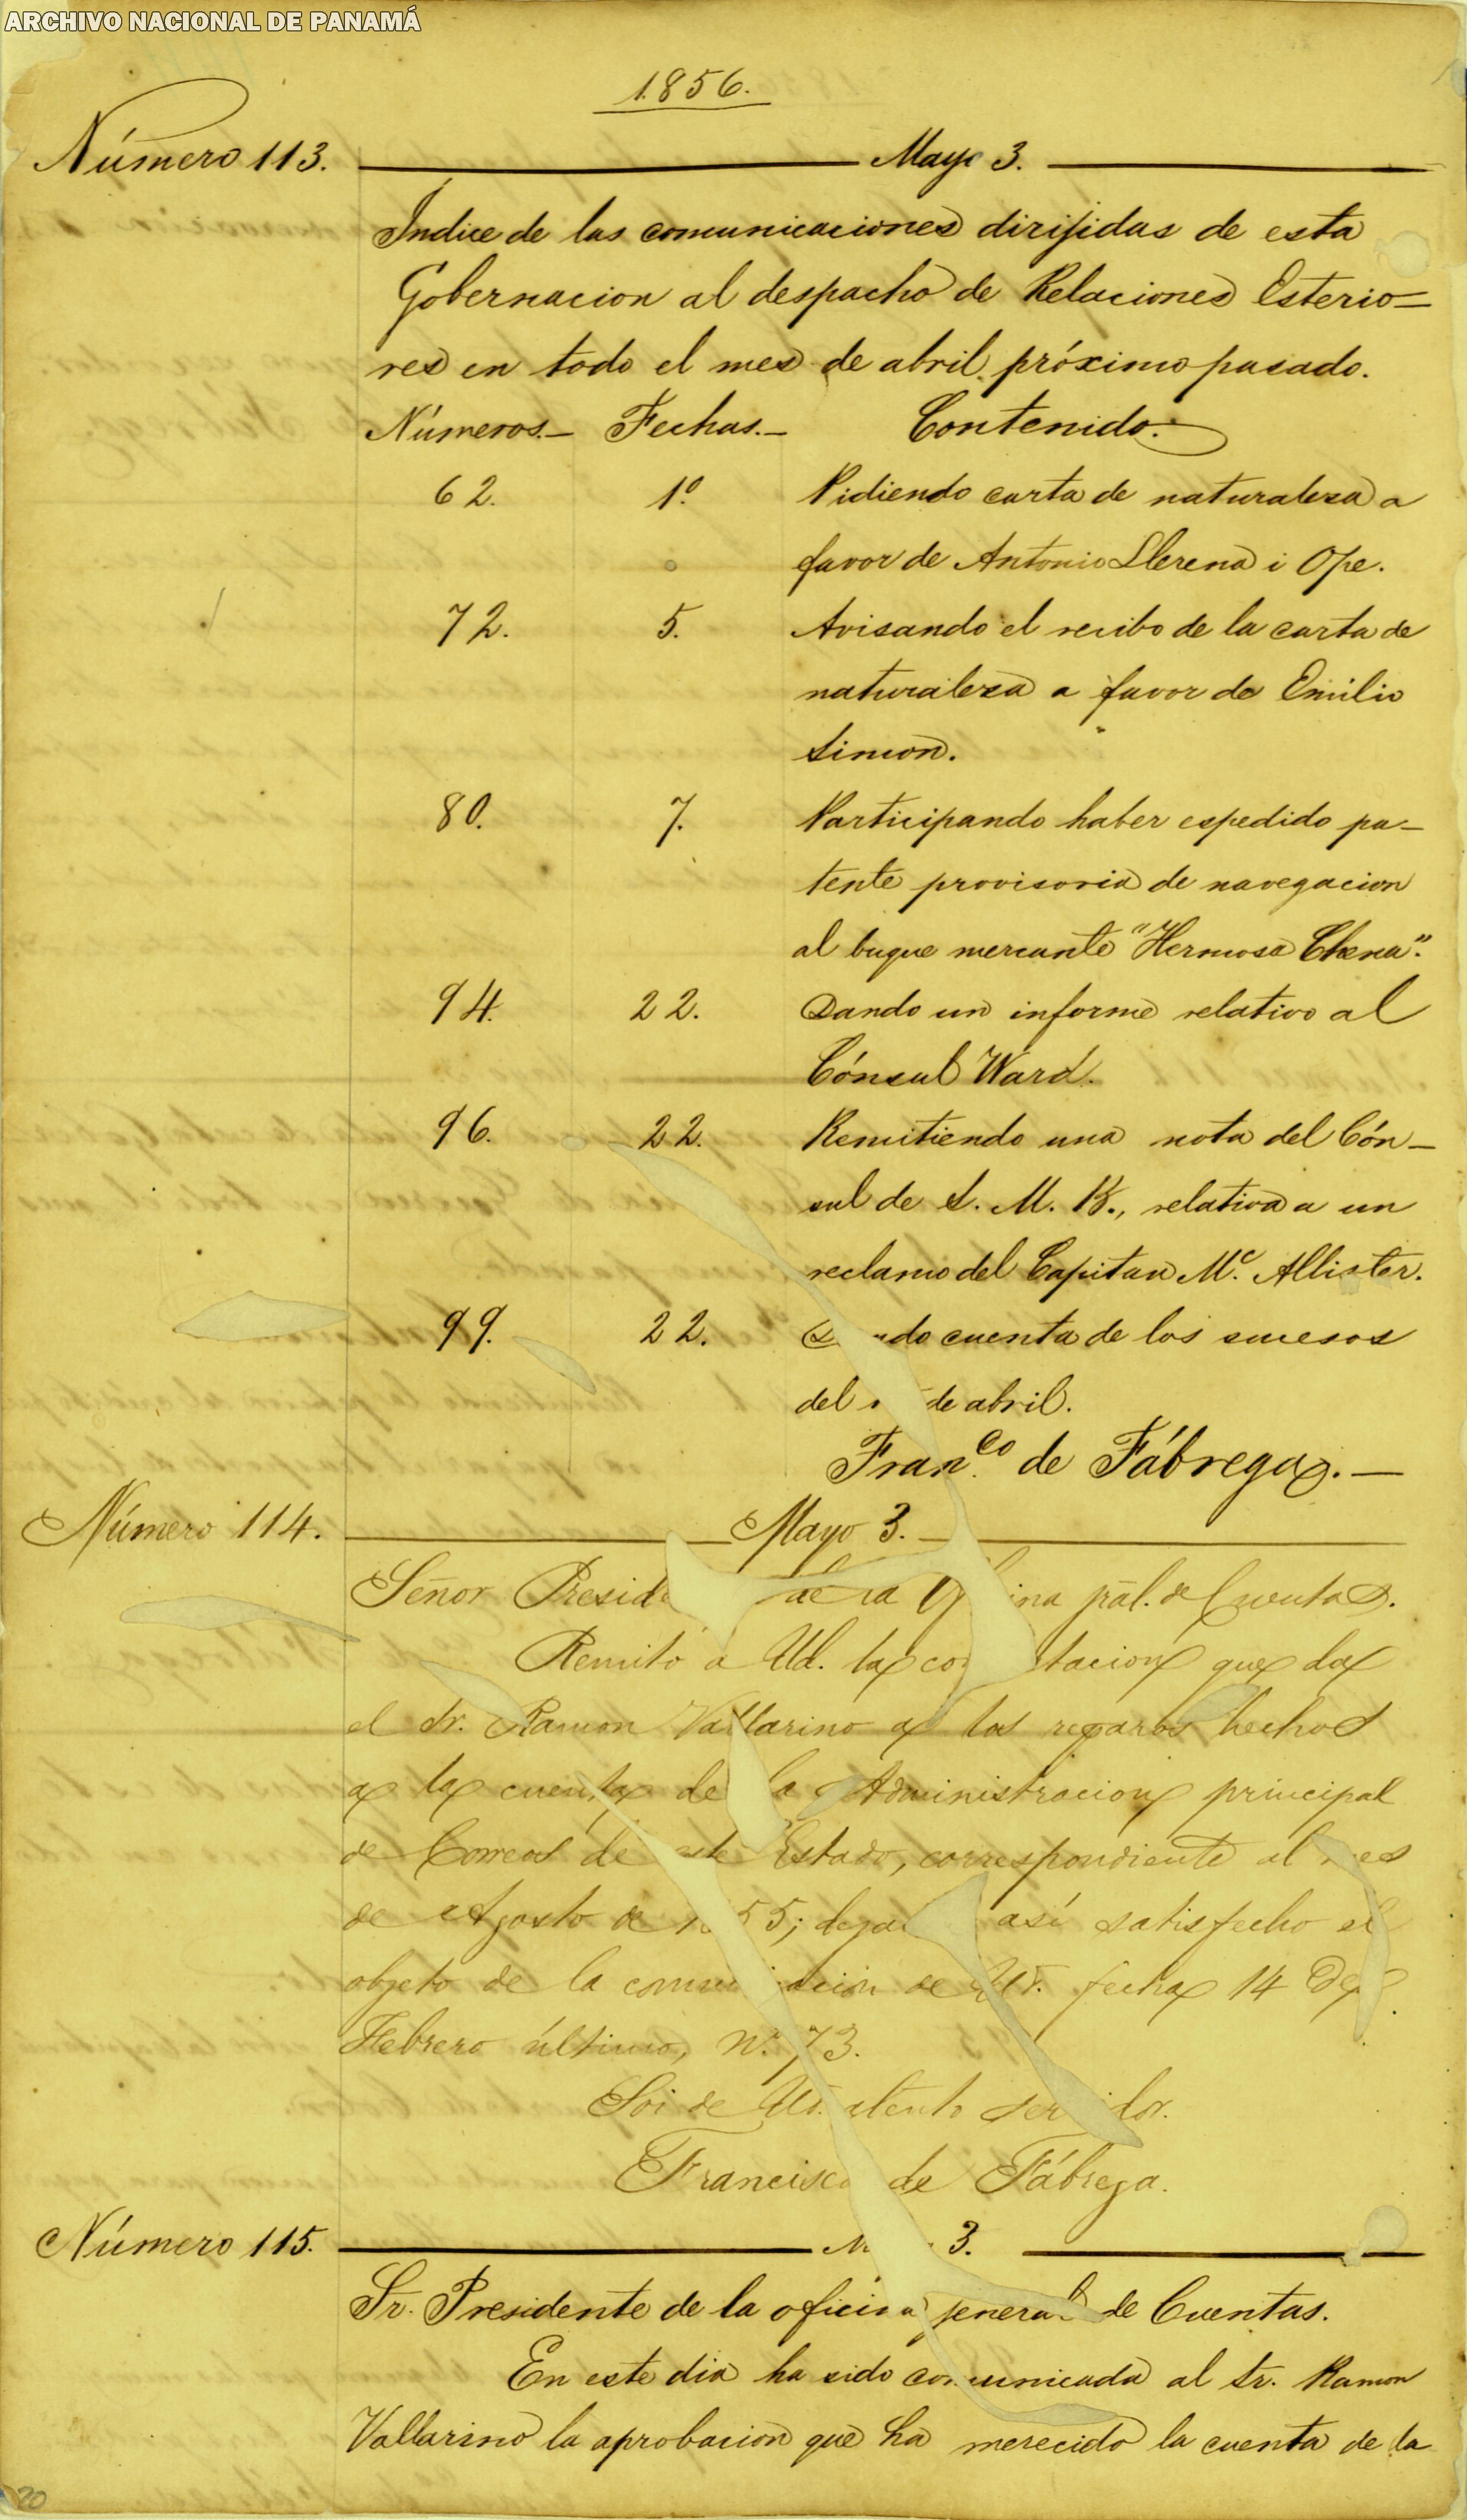 ARCHIVO NACIONAL DE PANAMÁ
1856.
Número 113. Mayo 3.
Índice de las comunicaciones dirijidas de esta
Gobernacion al despacho de Relaciones Esterio=
res en todo el mes de abril próximo pasado.
Números.- Fechas.- Contenido.
62. 1º. Pidiendo carta de naturaleza a
favor de Antonio Llerena i Ope.
72. 5. Avisando el recibo de la carta de
naturaleza a favor de Emilio
Simon.
80. 7. Participando haber espedido pa-
tente provisoria de navegacion
al buque mercante "Hermosa Elena".
94. 22. Dando un informe relativo al
Cónsul Ward.
96. 22. Remitiendo una nota del Cón-
sul de S. M. B., relativa a un
reclamo del Capitan Mc. Allister.
99. 22. ndo cuenta de los sucesos
del de abril.
Franco. de Fábrega.-
Número 114. Mayo 3.
Señor Presid de la ina pal. de Cuentas.
Remito a Ud. la con tacion que da
el Sr. Ramon Vallarino a los reparos hechos
a la cuenta de la Administracion principal
de Correos de este Estado, correspondiente al mes
de Agosto de 1855; deja así satisfecho el
objeto de la comunicacion de Ud. fecha 14 de
Febrero último, Nº. 73.
Soi de Ud. atento servidor.
Francisco de Fábrega.
Número 115. M 3.
Sr. Presidente de la oficina jeneral de Cuentas.
En este dia ha sido comunicada al Sr. Ramon
Vallarino la aprobacion que ha merecido la cuenta de la
20